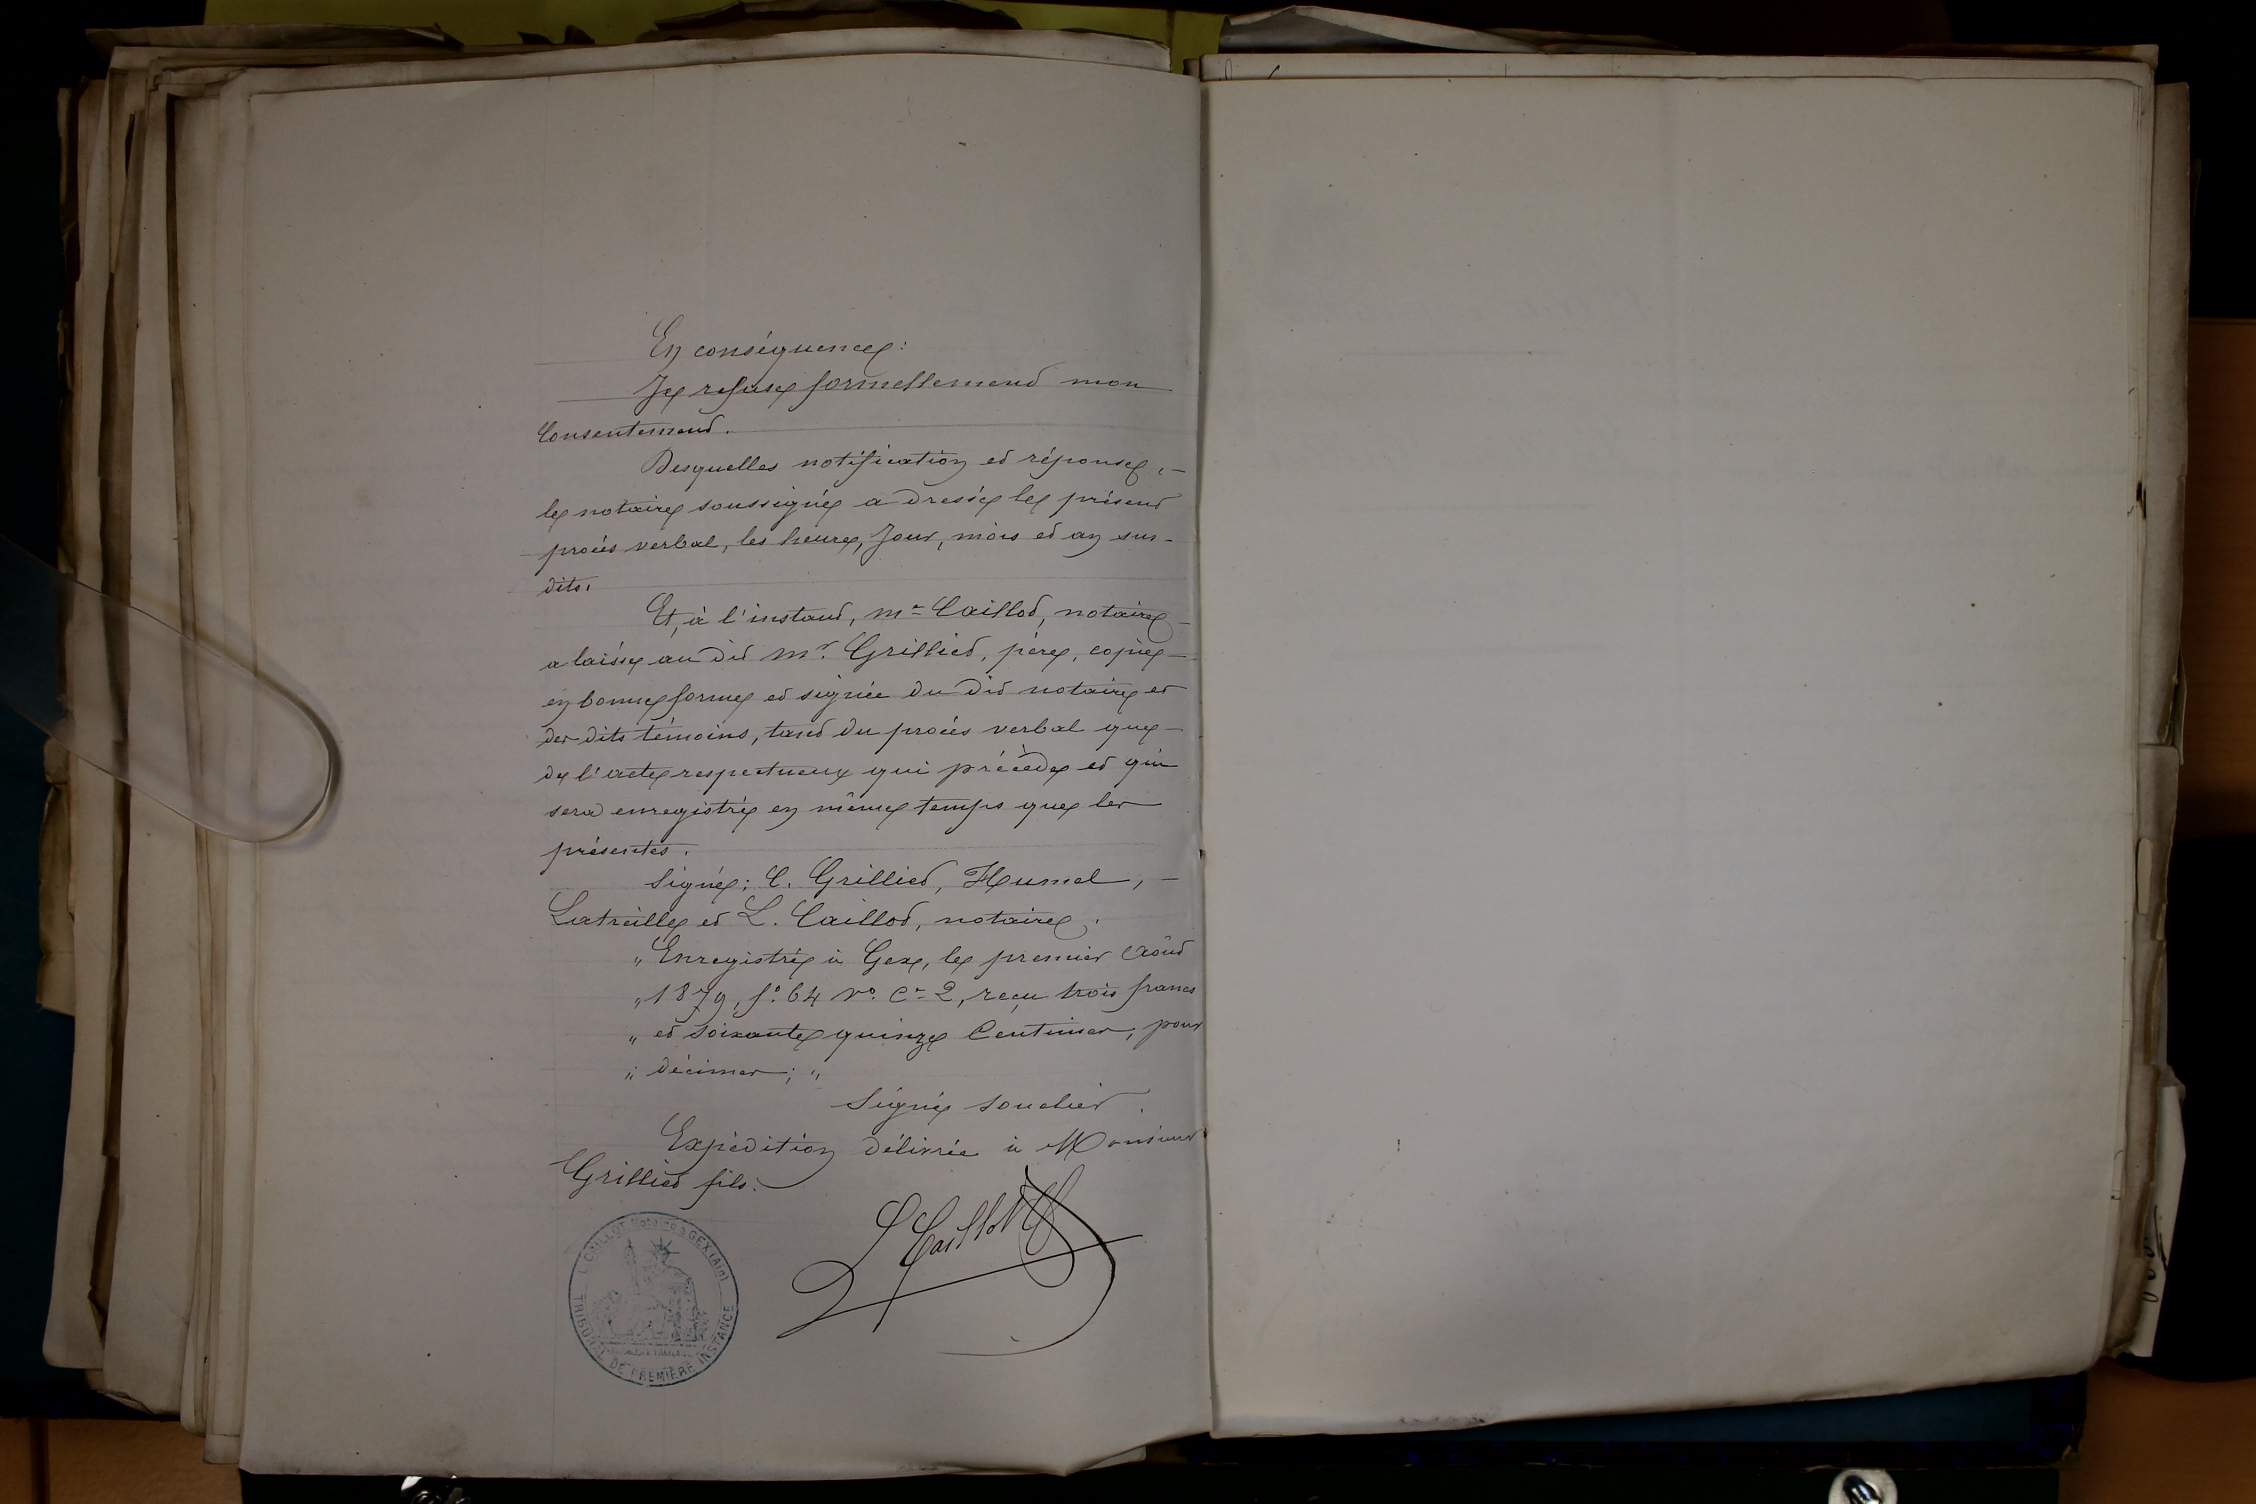 En conséquence :
Je refuse formellement mon
Consentement.
Desquelles notification et réponse, -
le notaire soussigné a dressé le présent
procès verbal, les heure, Jour, mois et an sus-
dits.
Et, à l'instant, Me Caillot, notaire -
a laissé au dit Mr. Grilliet, père, copie -
en bonne forme et signée du dit notaire et
des dits témoins, tant du procès verbal que -
de l'acte respectueux qui précède et qui
sera enregistré en même temps que les
présentes.
Signé : C. Grilliet, Humel, -
Latreille et L. Caillot, notaire.
" Enregistré à Gex, le premier Août
" 1879, fo. 64 Vo. Ce 2, reçu trois francs
" et soixante quinze Centimes, pour
" décimes ; "
Signé Souchier.
Expédition délivrée à Monsieur
Grilliet fils.
L Caillot
L. CAILLOT Notaire à GEX (Ain)
TRIBUNAL DE PREMIERE INSTANCE